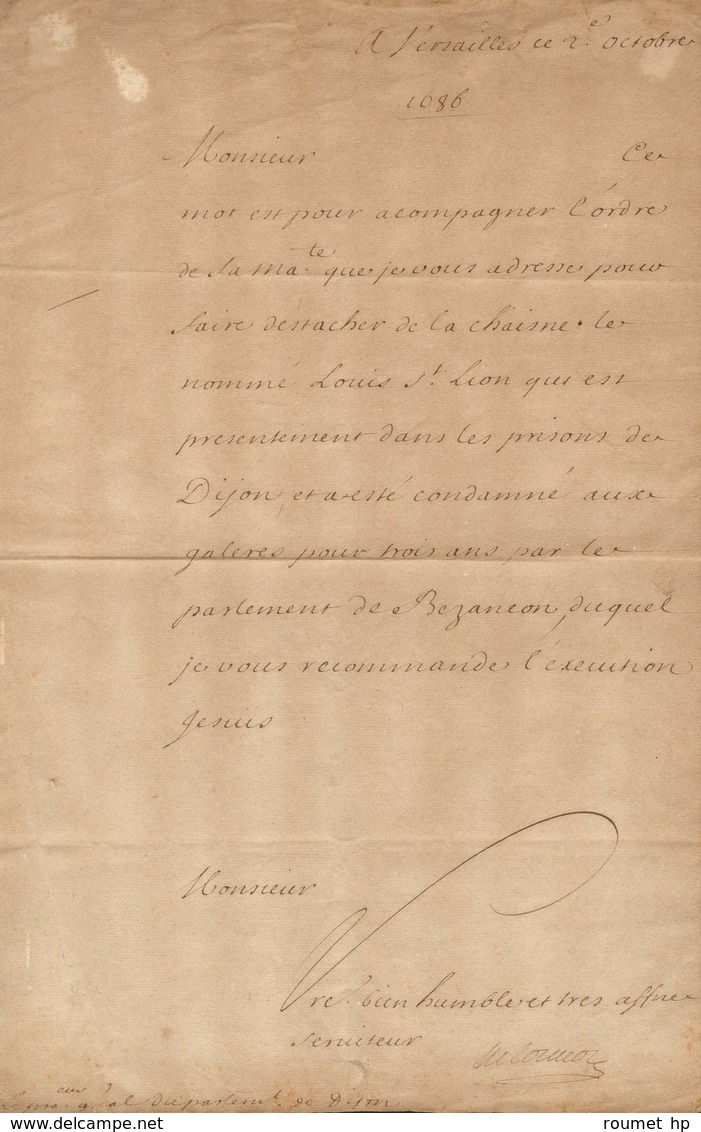 A Versailles ce 2e. octobre
1686.
Monsieur Ce
mot est pour acompagner l'ordre
de sa Ma.te que je vous adresse pour
faire destacher de la chaisne le
nommé Louis St. Lion qui est
presentement dans les prisons de
Dijon et a esté condamné aux
galeres pour trois ans par le
parlement de Bezancon, duquel
je vous recommande l'execution
Jesuis
Monsieur
Vre. bien humble et tres affne
serviteur
Le pro.eur g'ral du parlemt. de Dijon
roumet hp